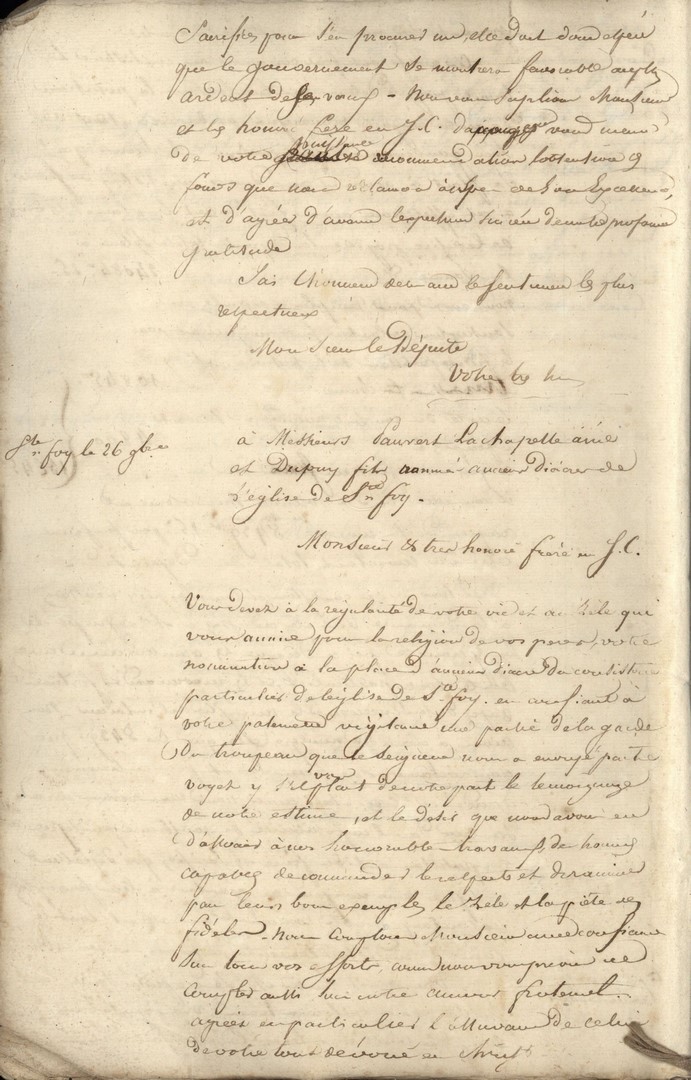 Sacrifices pour s'en procurer un, elle doit donc espérer
que le gouvernement se montrera favorable au plus
ardent de ses voeux - Nous vous supplions Monsieur
et très honoré frère en J. C. d'appuyer
puissance
de votre recommandation l'obtention
que nous réclamons de Son Excellence,
et d'agréer d'avance l'expression sincère de notre profonde
gratitude
J'ai l'honneur d'être avec les sentiments les plus
respectueux
Monsieur le Député
Votre très hu
Ste foy le 26 9bre
à Messieurs Pauvert Lachapelle ainé
et Dupuy fils ancien diacre de
l'église de Ste foy.
Monsieur & très honoré frère en J. C.
Vous devez à la régularité de votre vie et au zèle qui
vous anime pour la religion de vos peres, votre
nomination à la place d'ancien diacre du consistoire
particulier de l'église de Ste foy. en confiant à
votre paternelle vigilance une partie de la garde
Du troupeau que le seigneur nous a
voyez y s'il vous plait de notre part le temoignage
de notre estime, et le désir que nous avons eu
d'associer à nos honorables travaux, des hommes
capables de commander le respect et de ranimer
par leurs bons exemples le zèle et la piété des
fidèles. Nous comptons Monsieur avec confiance
Sur tous vos efforts, comme nous vous prions de
compter aussi sur notre amour fraternel.
agréez en particulier l'assurance de celui
de votre tout dévoué en Christ